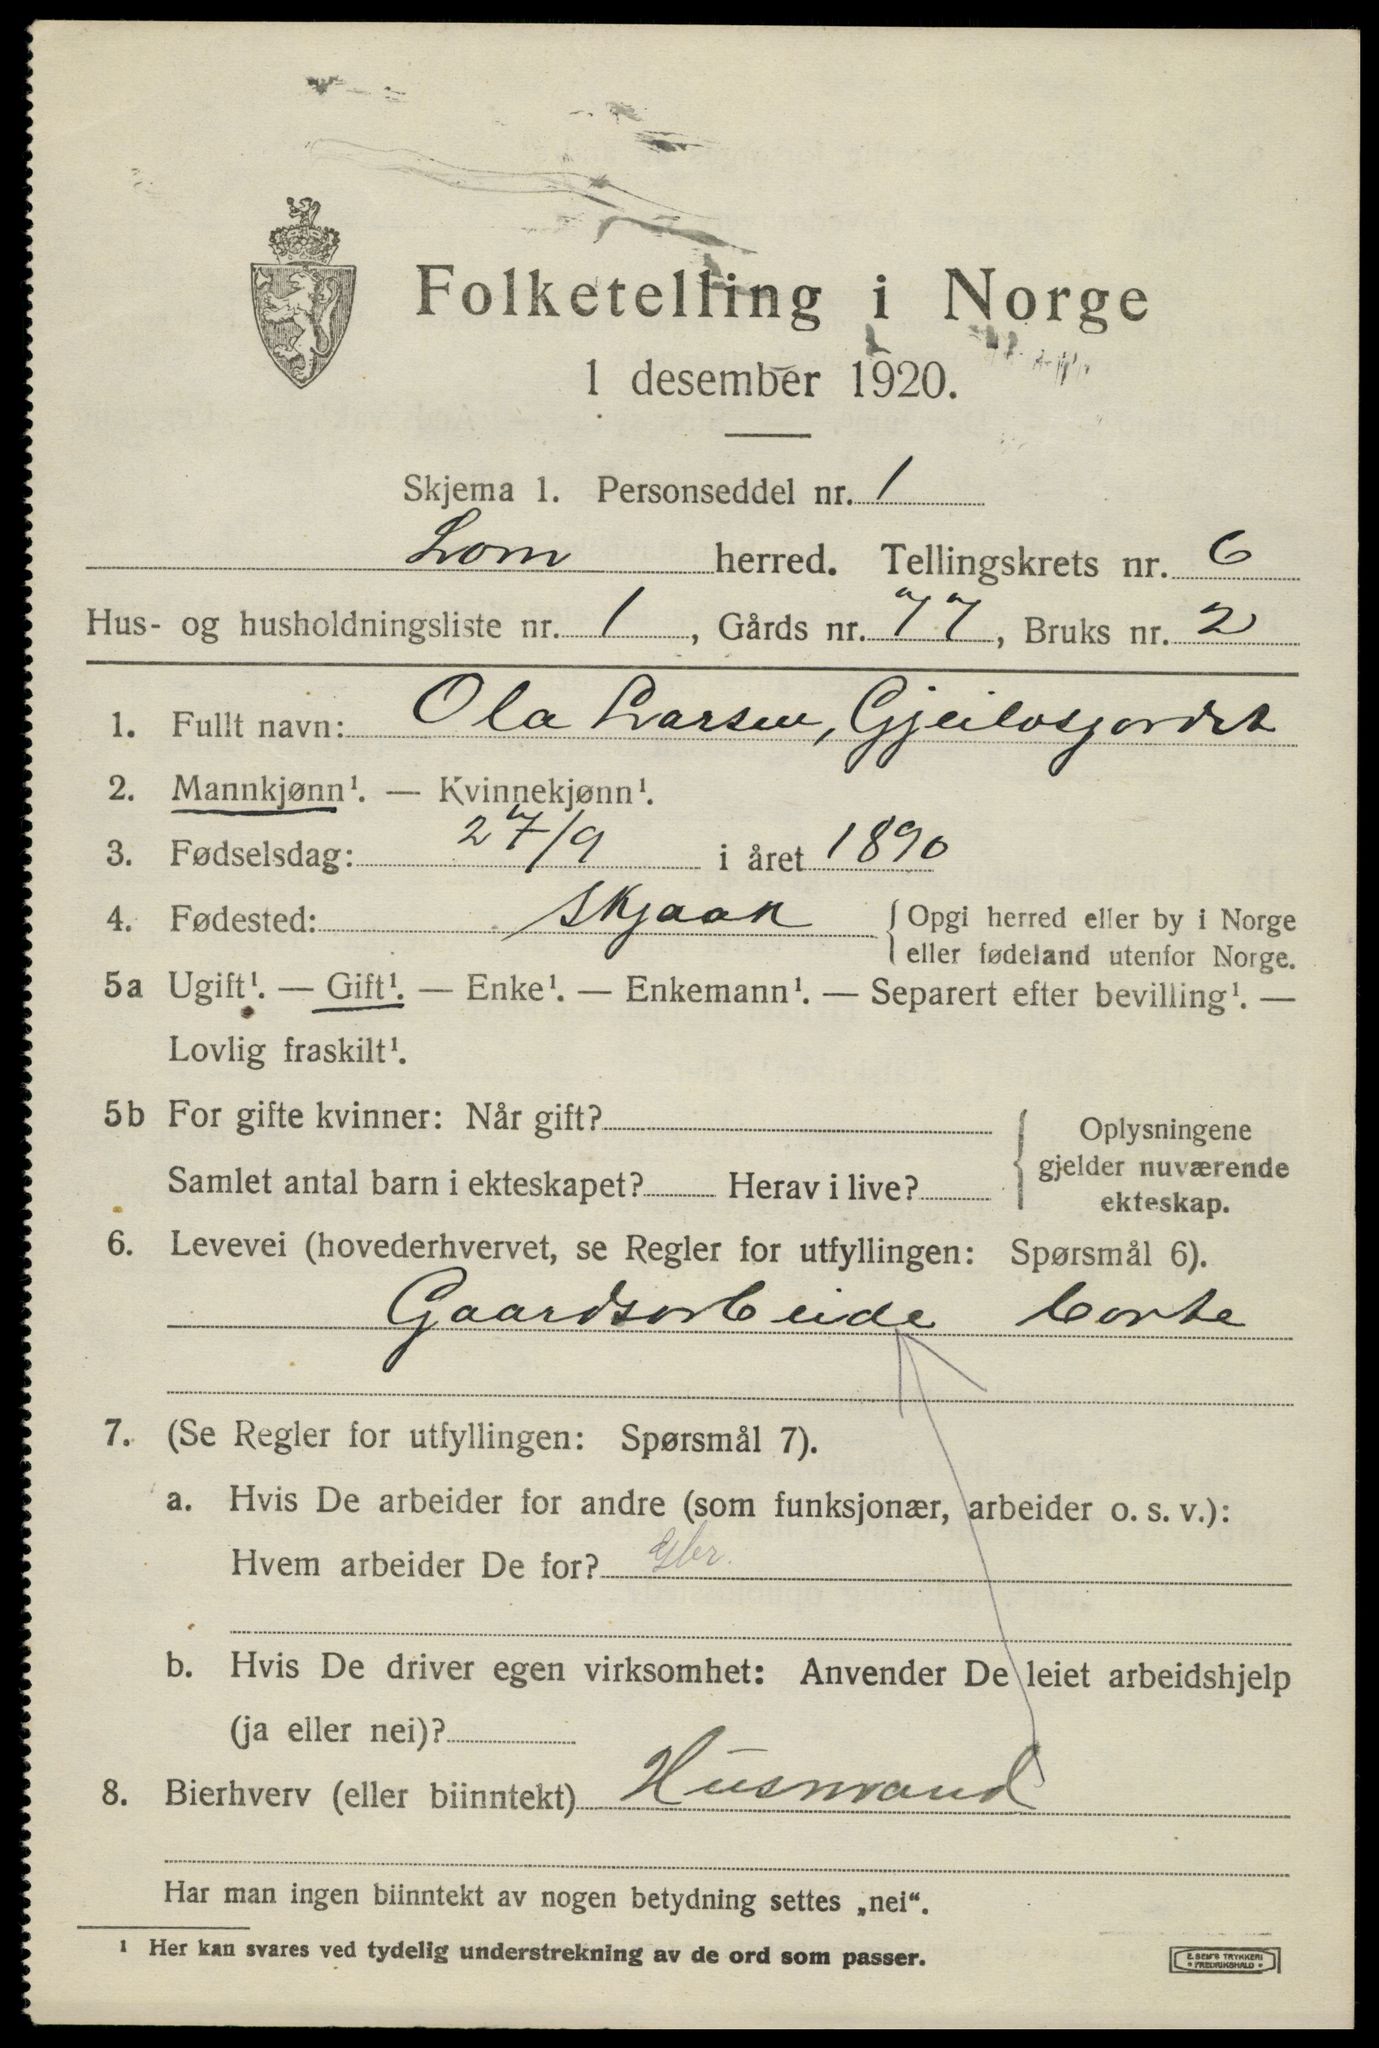 Folketelling i Norge
1 desember 1920.
Skjema 1. Personseddel nr. 1
Lom herred. Tellingskrets nr. 6
Hus- og husholdningsliste nr. 1, Gårds nr. 77, Bruks nr. 2
1. Fullt navn: Ola Larsen, Gjeilosjordet
2. Mannkjønn¹. — Kvinnekjønn¹.
3. Fødselsdag: 27/9 i året 1890
4. Fødested: Skjaak { Opgi herred eller by i Norge
eller fødeland utenfor Norge.
5a Ugift¹. — Gift¹. — Enke¹. — Enkemann¹. — Separert efter bevilling¹. —
Lovlig fraskilt¹.
5b For gifte kvinner: Når gift?
Samlet antal barn i ekteskapet? Herav i live?
Oplysningene
gjelder nuværende
ekteskap.
6. Levevei (hovederhvervet, se Regler for utfyllingen: Spørsmål 6).
Gaardsarbeide
7. (Se Regler for utfyllingen: Spørsmål 7).
a. Hvis De arbeider for andre (som funksjonær, arbeider o. s. v.):
Hvem arbeider De for? Gbr.
b. Hvis De driver egen virksomhet: Anvender De leiet arbeidshjelp
(ja eller nei)?
8. Bierhverv (eller biinntekt) Husmand
Har man ingen biinntekt av nogen betydning settes „nei“.
¹ Her kan svares ved tydelig understrekning av de ord som passer.
E. SEM'S TRYKKERI
* FREDRIKSHALD *